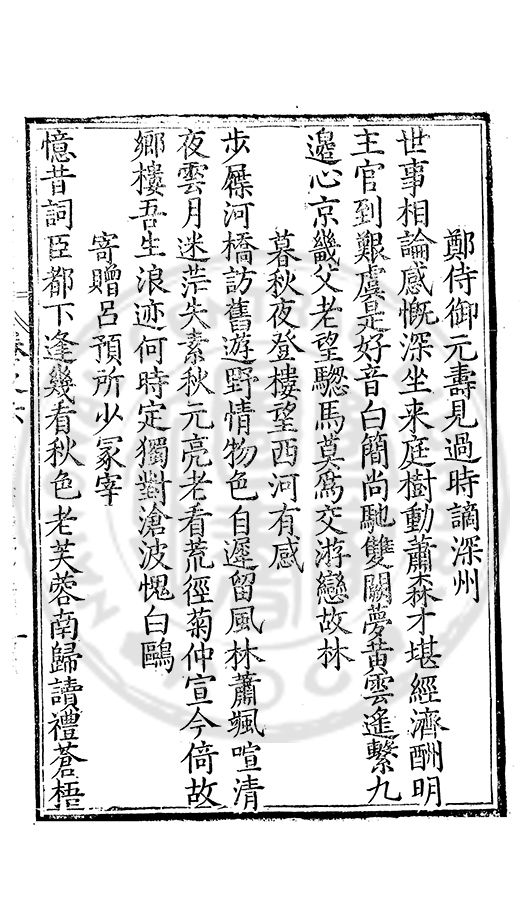 鄭侍御元壽見過時謫深州
世事相論感慨深坐来庭樹動蕭森才堪經濟酬明
主官到艱虞是好音白簡尚馳雙闕夢黃雲遙繫九
邊心京畿父老望驄馬莫爲交游戀故林
暮秋夜登樓望西河有感
步屧河橋訪舊遊野情物色自遲留風林蕭颯喧清
夜雲月迷茫失素秋元亮老看荒徑菊仲宣今倚故
鄉樓吾生浪迹何時定獨對滄波愧白鷗
寄贈呂預所少冢宰
憶昔詞臣都下逢幾看秋色老芙蓉南歸讀禮蒼梧